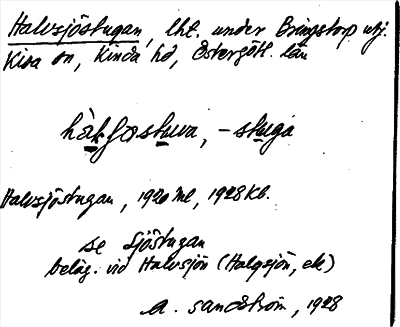 Halvsjöstugan, lht. under Bringstorp utj.
Kisa sn, Kinda hd, Östergötl. län
hàlfʃostuva, -stuga
Halvsjöstugan, 1920 ml, 1928 Kb.
se Sjöstugan
beläg. vid Halvsjön (Halgsjön, ek)
A. Sandström, 1928